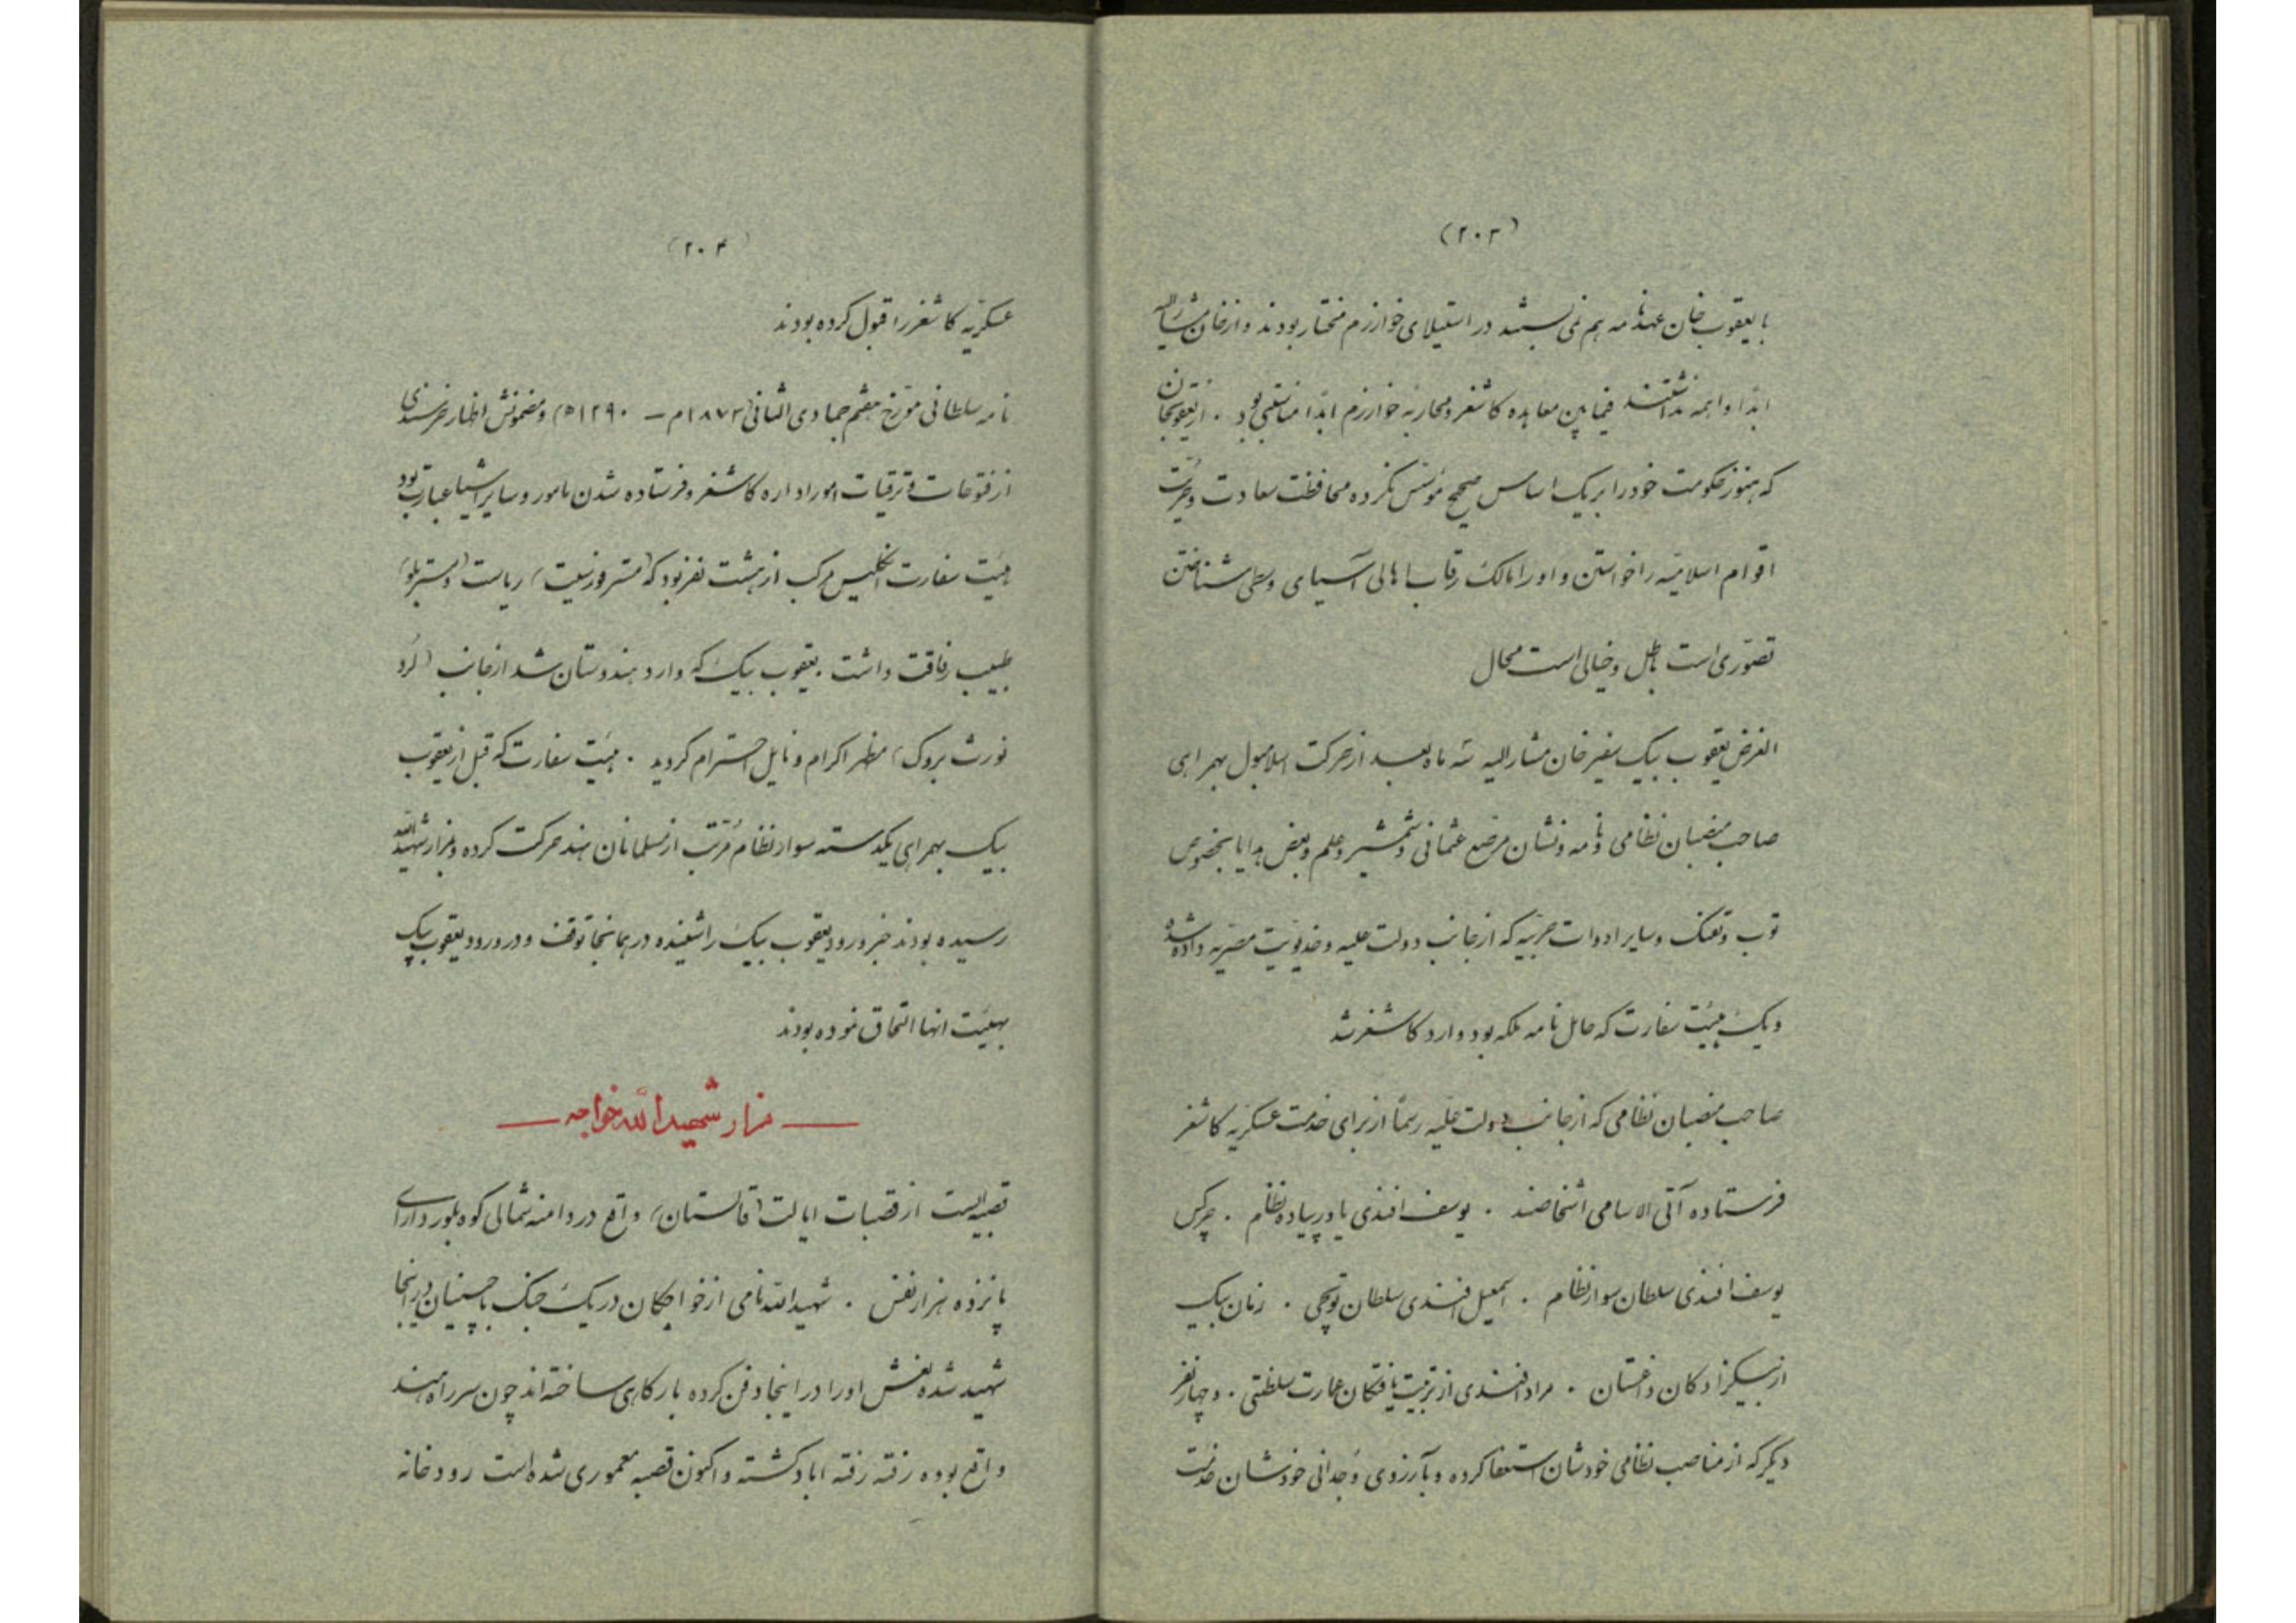 (۲۰۳)
با یعقوب خان عهدنامه هم نمی بستند در استیلای خوارزم مختار بودند و از خان مشارالیه
ابدا واهمه نداشتند فیمابین معاهده کاشغر و محاربه خوارزم ابدا منافتی نبود . از یعقوبخان
که هنوز حکومت خود را بر یک اساس صحیح مؤسس نکرده محافظت سعادت و حریّت
اقوام اسلامیّه را خواستن و او را مالک رقاب اهالی آسیای وسطی شناختن
تصوّری است باطل و خیالی است محال
الغرض یعقوب بیک سفیر خان مشارالیه سه ماه بعد از حرکت اسلامبول بهمراهی
صاحب منصبان نظامی و نامه و نشان مرصع عثمانی و شمشیر و علم و بعض هدایا بخصوص
توپ و تفنک و سایر ادوات حربیّه که از جانب دولت علیه و خدیویّت مصریّه داده شده
و یک هیئت سفارت که حامل نامه ملکه بود وارد کاشغر شد
صاحب منصبان نظامی که از جانب دولت علیّه رسماً از برای خدمت عسکریّه کاشغر
فرستاده آتی الاسامی اشخاصند . یوسف افندی یاور پیاده نظام . چرکس
یوسف افندی سلطان سوار نظام . اسمعیل افندی سلطان توپچی . زمان بیک
از بیکزادکان داغستان . مراد افندی از تربیت یافتکان عمارت سلطنتی . و چهار نفر
دیکر که از مناصب نظامی خودشان استعفا کرده و بآرزوی وجدانی خودشان خدمت
(۲۰۴)
عسکریّه کاشغر را قبول کرده بودند
نامه سلطانی مورّخ هفتم جمادی الثانی (۱۸۷۳م – ۱۲۹۰ه) و مضمونش اظهار خرسندی
از فتوحات و ترقیات امور اداره کاشغر و فرستاده شدن مامور و سایر اشیا عبارت بود
هیئت سفارت انکلیس مرکب از هشت نفر بود که (مستر فورسیت) ریاست (دمستر بلو)
طبیب رفاقت داشت . یعقوب بیک که وارد هندوستان شد از جانب (لرد
نورث بروک) مظهر اکرام و نایل احترام کردید . هیئت سفارت که قبل از یعقوب
بیک بهمراهی یکدسته سوار نظام مرتب از مسلمانان هند حرکت کرده و بمزار شهیدالله
رسیده بودند خبر ورود یعقوب بیک را شنیده در همانجا توقف و در ورود یعقوب بیک
بهیئت انها التحاق نموده بودند
— مزار شهیدالله خواجه —
قصبه ایست از قصبات ایالت (قالستان) واقع در دامنه شمالی کوه بلور دارای
پانزده هزار نفس . شهیدالله نامی از خواجکان در یک جنک با چینیان در اینجا
شهید شده نعش او را در اینجا دفن کرده بارکاهی ساخته اند چون سر راه هند
واقع بوده رفته رفته اباد کشته و اکنون قصبه معموری شده است رودخانه